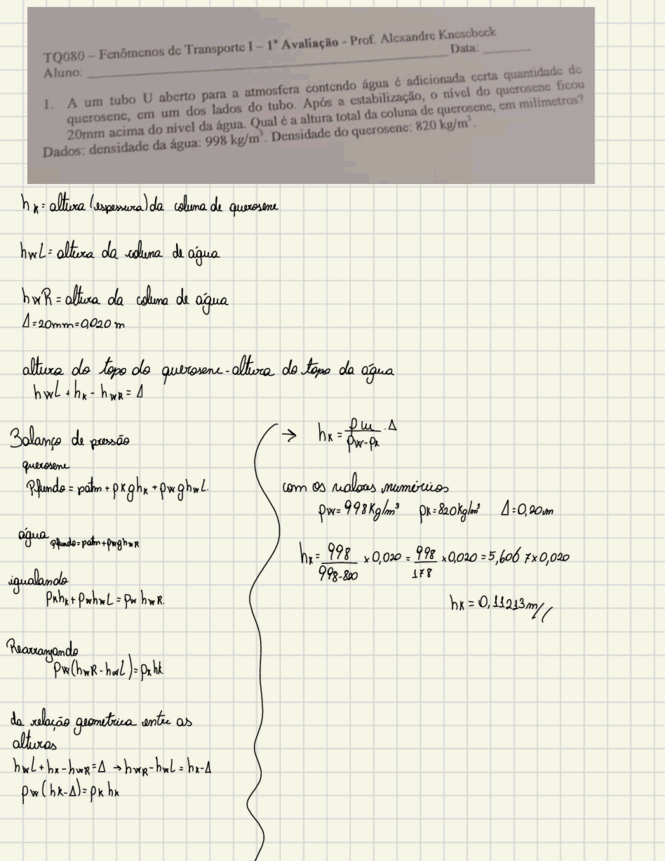 TQ080 – Fenômenos de Transporte I – 1ª Avaliação - Prof. Alexandre Knesebeck
Aluno: Data:
1. A um tubo U aberto para a atmosfera contendo água é adicionada certa quantidade de
querosene, em um dos lados do tubo. Após a estabilização, o nível do querosene ficou
20mm acima do nível da água. Qual é a altura total da coluna de querosene, em milímetros?
Dados: densidade da água: 998 kg/m³. Densidade do querosene: 820 kg/m³.
hK = altura (espessura) da coluna de querosene
hwL = altura da coluna de água
hwR = altura da coluna de água
Δ=20mm=0,020m
altura do topo do querosene - altura do topo da água
hwL + hK - hwR = Δ
Balanço de pressão
querosene
Pfundo = patm + ρKghK + ρwghwL
água Pfundo=patm+ρwghwR
igualando
ρKhK + ρwhwL = ρw hwR
Rearranjando
ρw(hwR-hwL) = ρK hK
da relação geometrica entre as
alturas
hwL + hK - hwR = Δ → hwR - hwL = hK - Δ
ρw(hK-Δ) = ρK hK
→ hK = ρw/ρw-ρK · Δ
com os valores numéricos
ρw = 998Kg/m³ ρK = 820kg/m³ Δ=0,20m
hK = 998/998-820 × 0,020 = 998/178 × 0,020 = 5,6067 × 0,020
hK = 0,11213m//